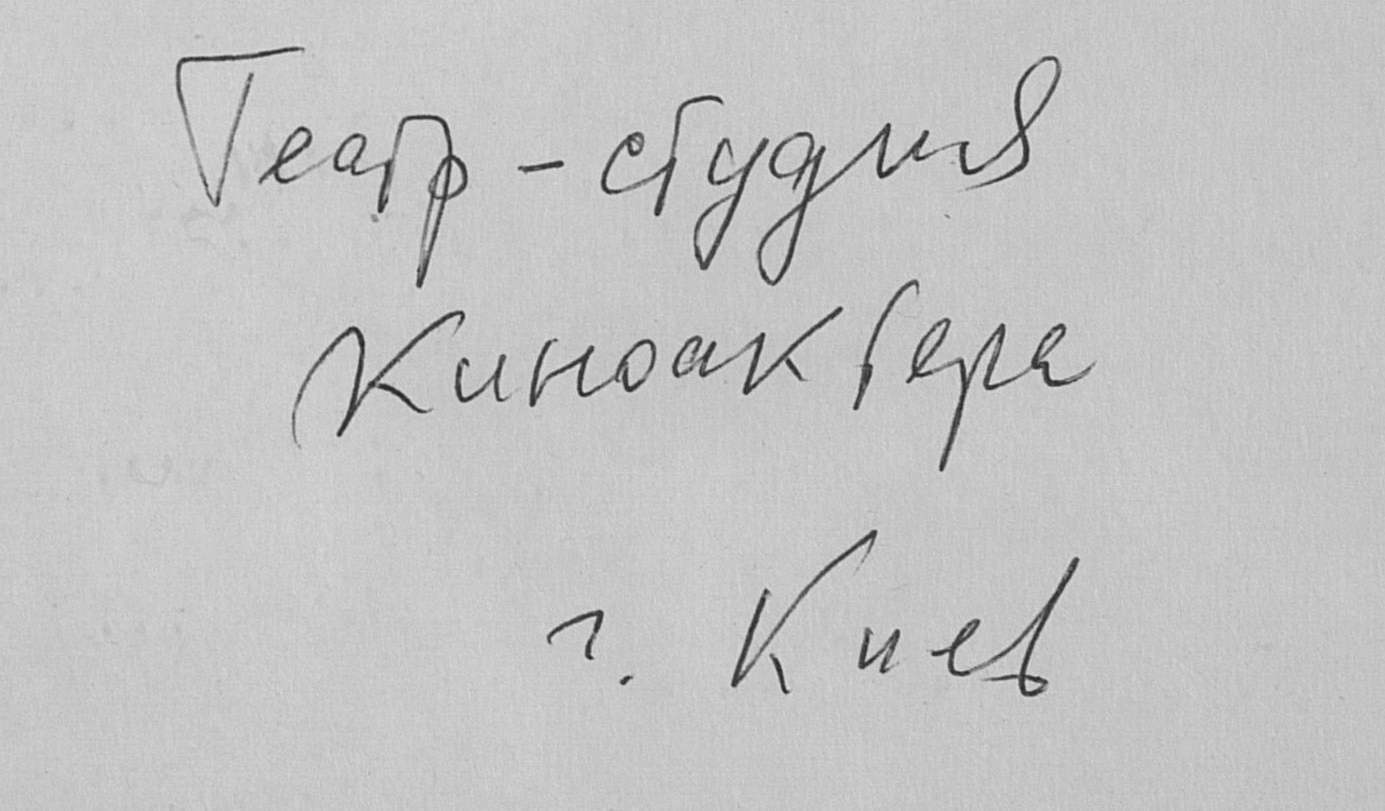 Театр - студия
Киноактера
г. Киев